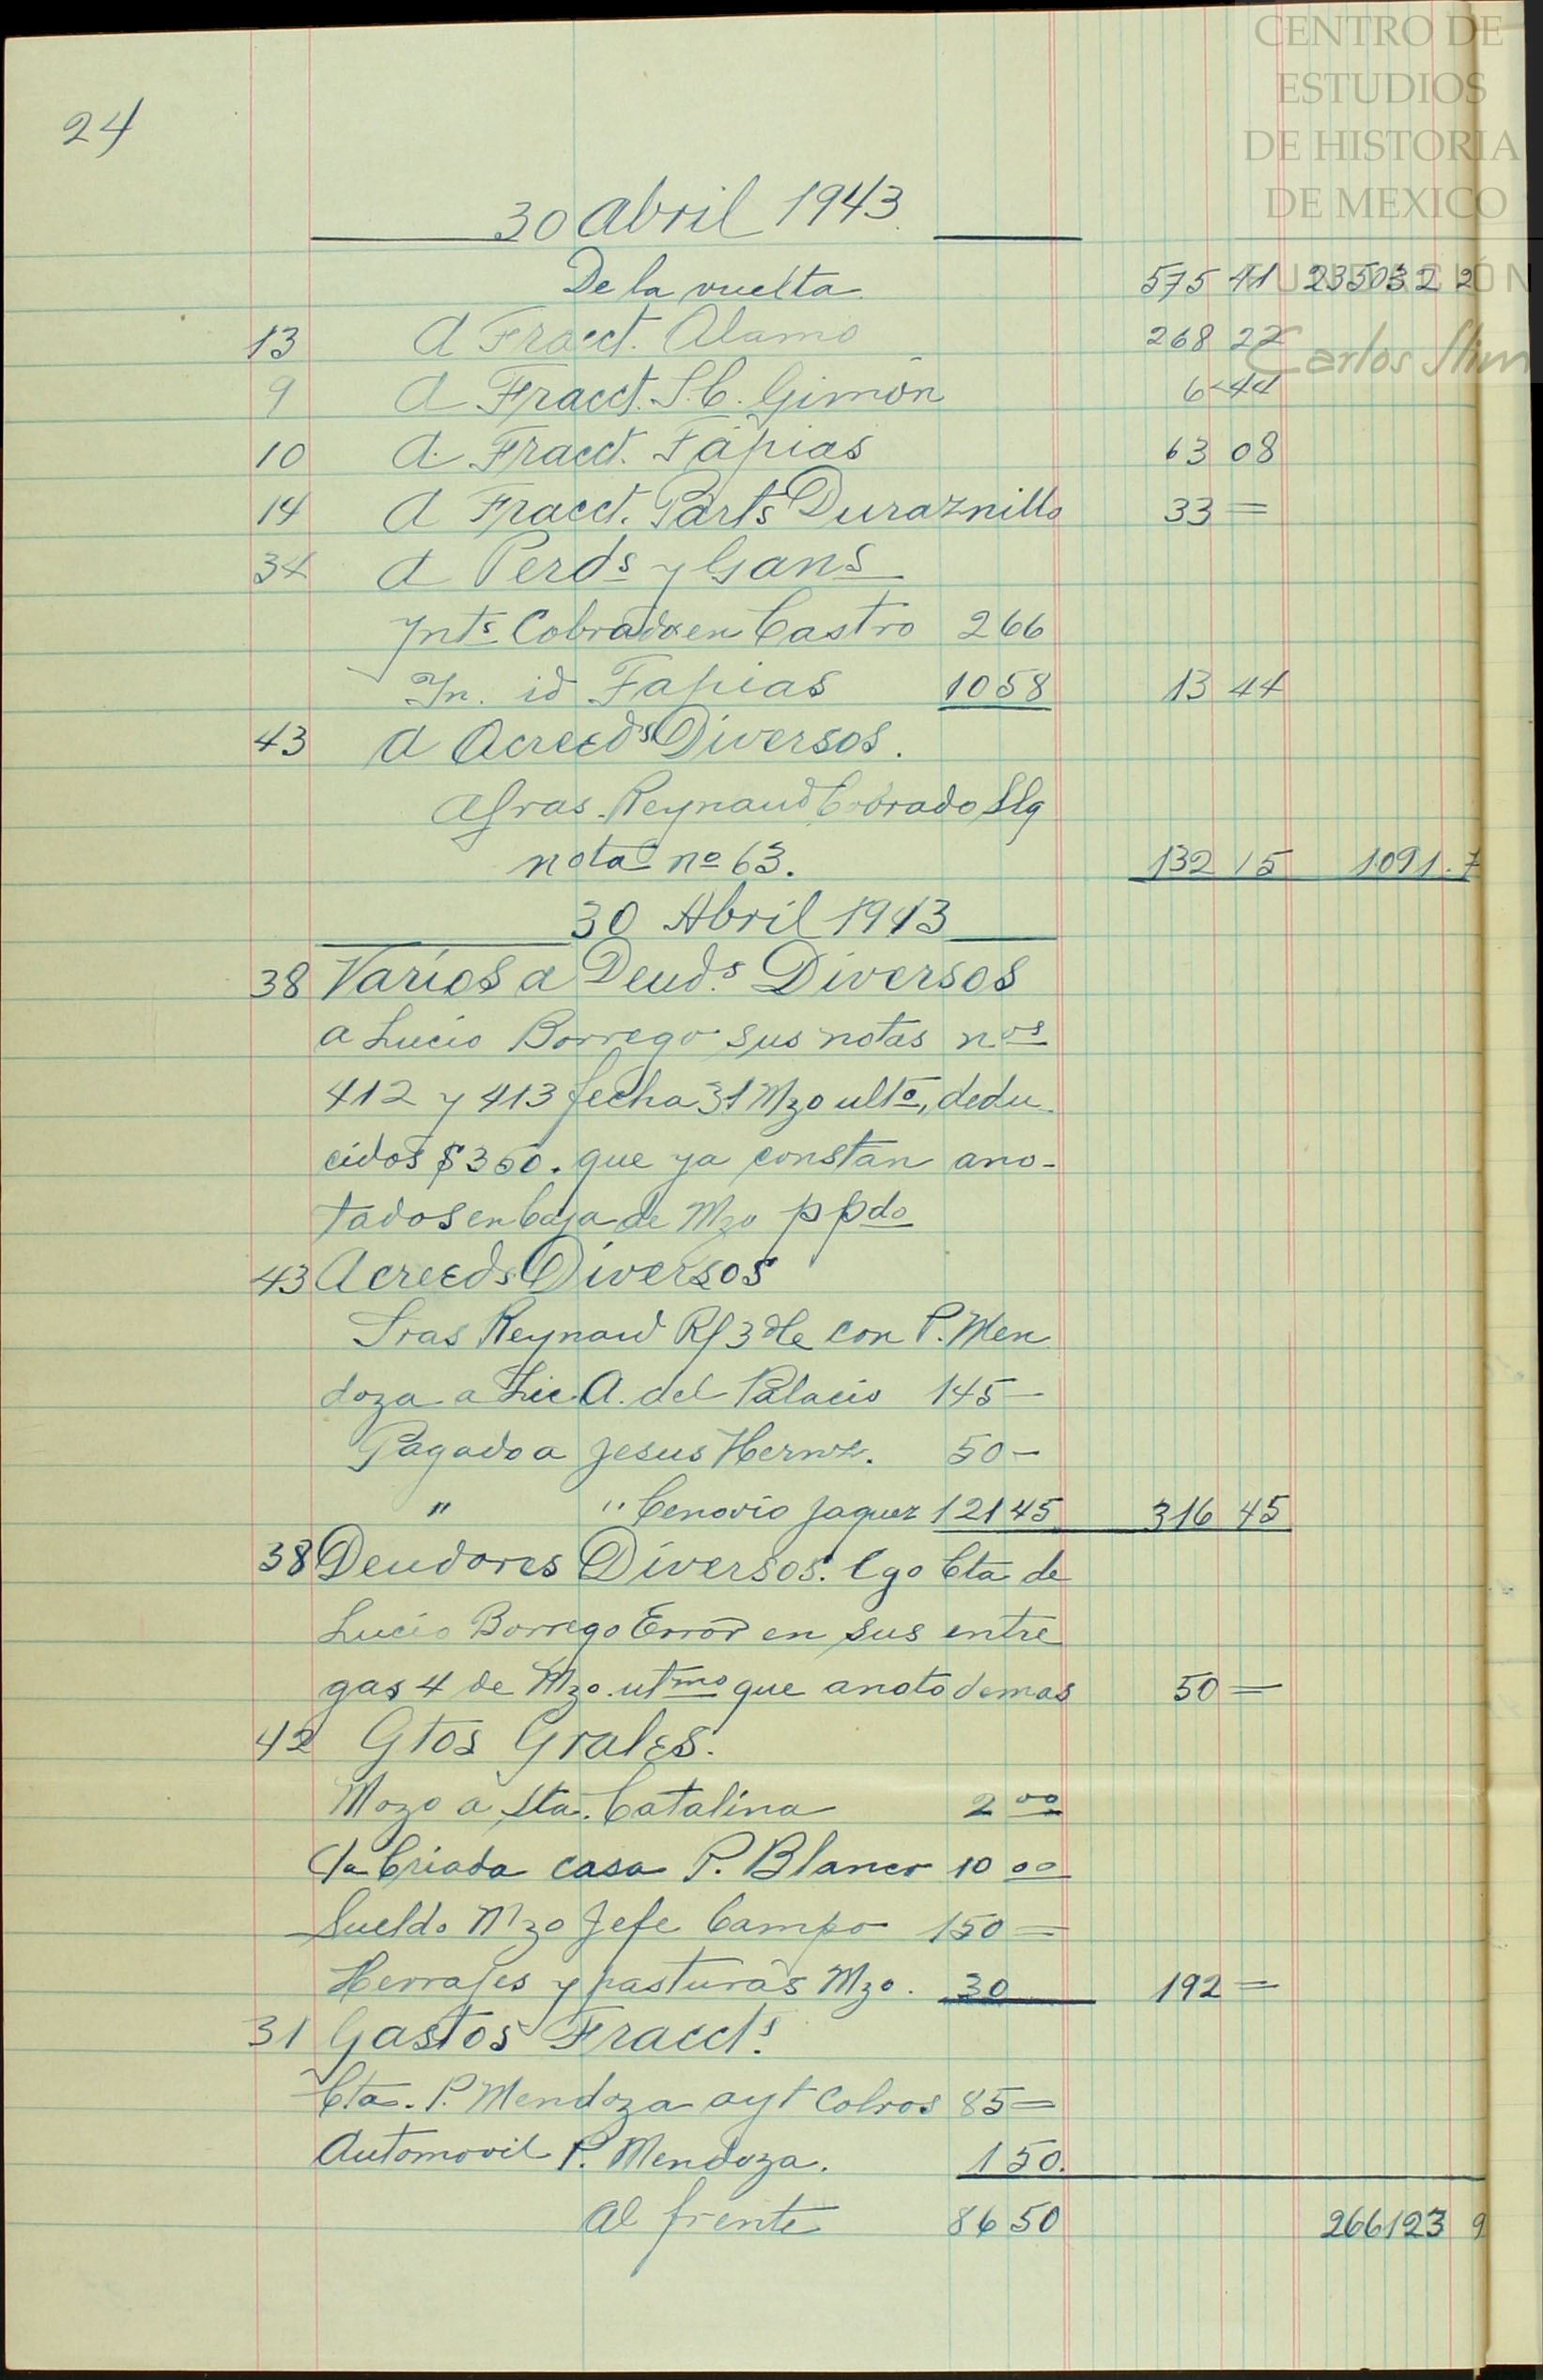 24
CENTRO DE
ESTUDIOS
DE HISTORIA
DE MEXICO
FUNDACIÓN
Carlos Slim
30 Abril 1943.
De la vuelta 575 41 235032 2
13 A Fracct. Alamo 268 22
9 A Fracct. S. C. Gimón 6 44
10 A Fracct. Tapias 63 08
14 A Fracct. Parts Duraznillo 33 =
34 A Perds y Gans
Ynts Cobrados en Castro 2 66
Yn. id Tapias 10 58 13 44
43 A Acreeds Diversos.
A Sras. Reynaud Cobrado Slg
nota no 63. 132 15 1091.7
30 Abril 1943
38 Varios a Deuds. Diversos
a Lucio Borrego sus notas nos
412 y 413 fecha 31 Mzo ulto, dedu-
cidos $350. que ya constan ano-
tados en Caja de Mzo ppdo
43 Acreeds Diversos
Sras Reynaud Rf 3 de con P. Men
doza a Lic. A. del Palacio 145 —
Pagado a Jesus Hernz. 50 —
" " Cenovio Jaquez 121 45 316 45
38 Deudores Diversos. Cgo Cta de
Lucio Borrego Error en sus entre
gas 4 de Mzo. utmo que anoto demas 50 =
42 Gtos Grales.
Mozo a Sta. Catalina 2 00
Criada casa P. Blanco 10 00
Sueldo Mzo Jefe Campo 150 =
Herrajes y pasturas Mzo. 30 192 =
31 Gastos Fraccts.
Cta. P. Mendoza ayt Cobros 85 =
Automovil P. Mendoza. 1 50.
Al frente 86 50 266123 9